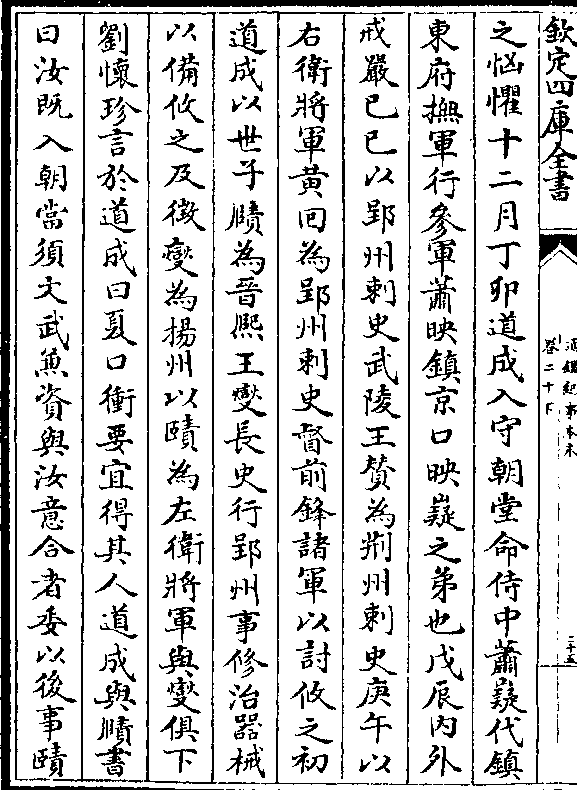 欽定四庫全書
通鑑紀事本末
卷二十下
二十五
之恟懼十二月丁卯道成入守朝堂命侍中蕭嶷代鎮
東府撫軍行參軍蕭映鎮京口映嶷之弟也戊辰内外
戒嚴已巳以郢州刺史武陵王贊為荆州刺史庚午以
右衛將軍黄回為郢州刺史督前鋒諸軍以討攸之初
道成以世子賾為晉熙王燮長史行郢州事修治器械
以備攸之及徵燮為揚州以賾為左衛將軍與燮俱下
劉懷珍言於道成曰夏口衝要宜得其人道成與賾書
曰汝既入朝當須文武兼資與汝意合者委以後事賾